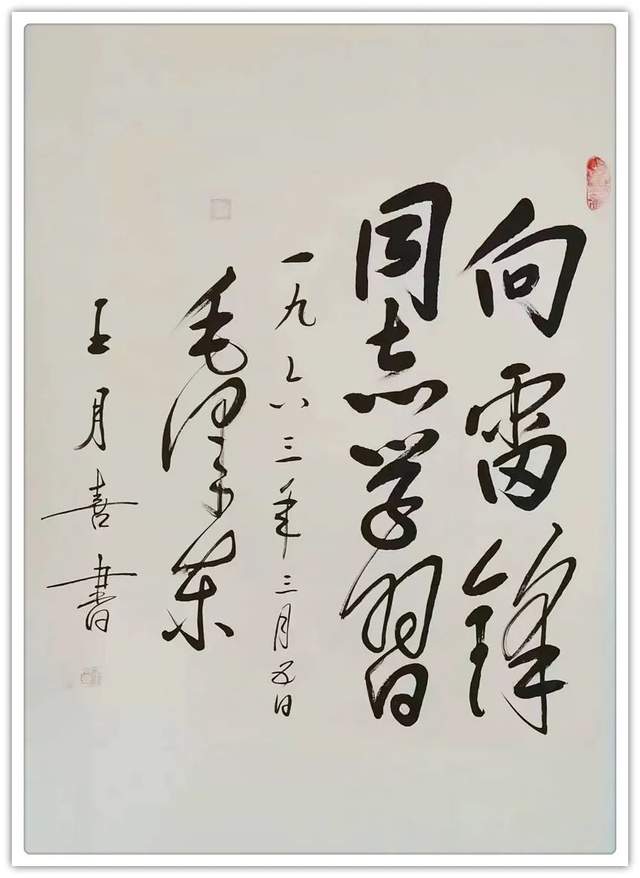 向雷锋
同志学習
一九六三年三月五日
毛泽东
王月喜書